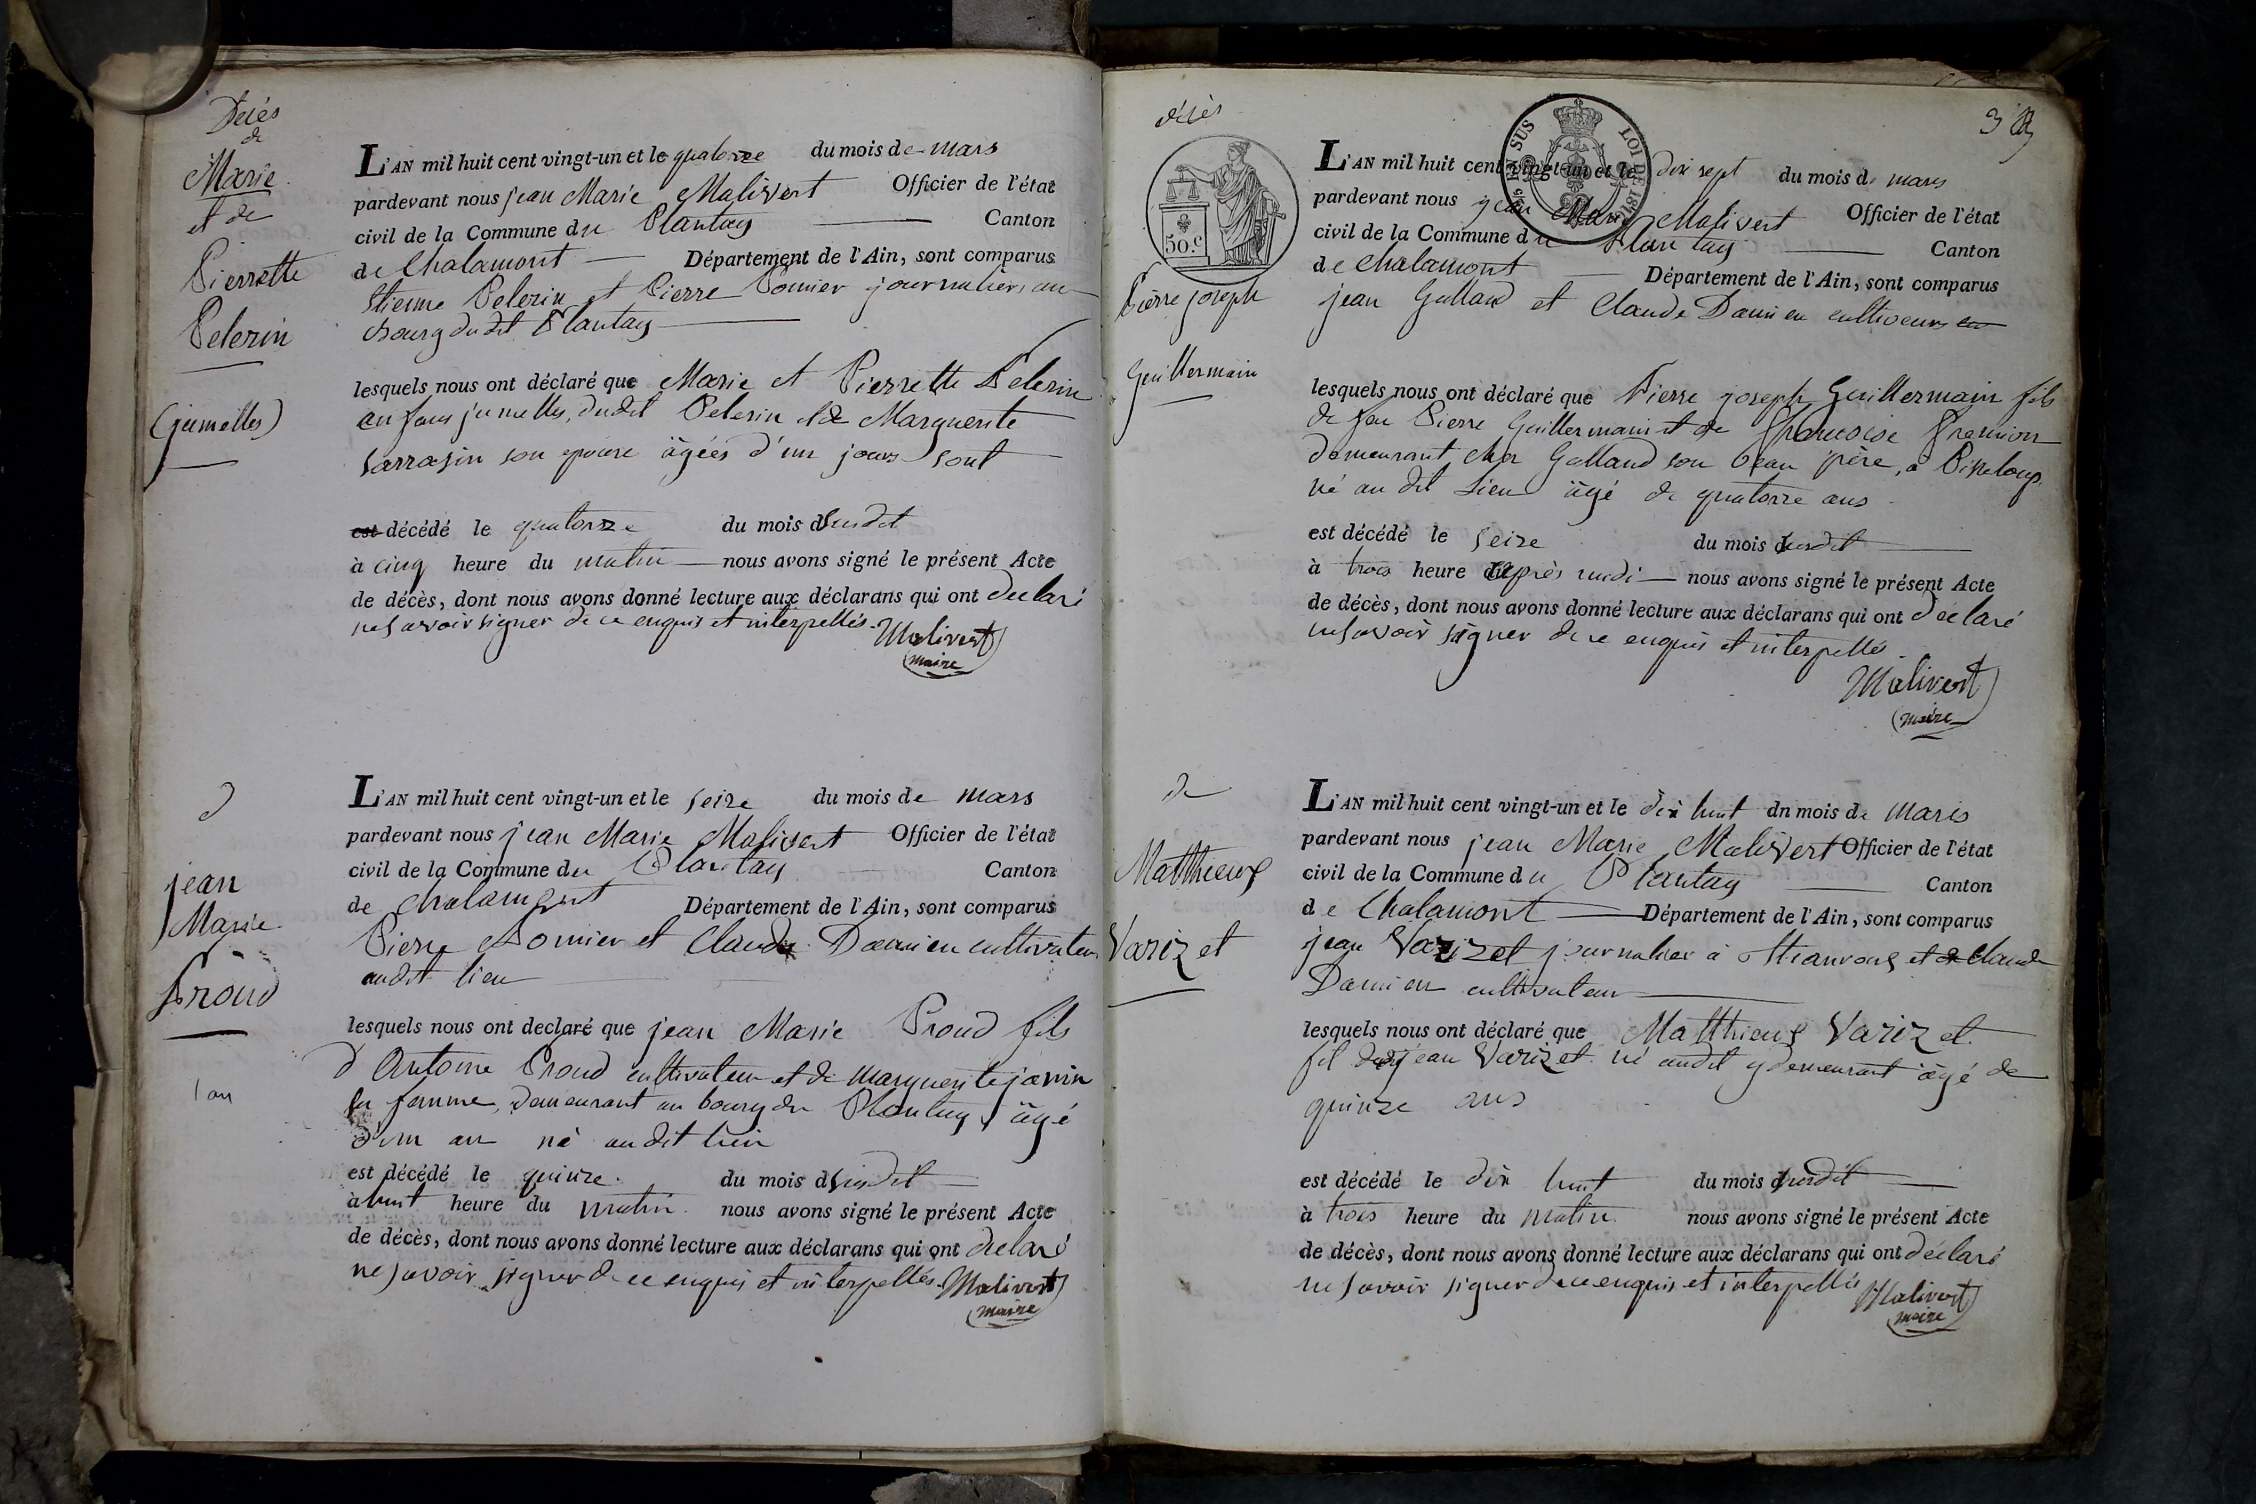 Décès
de
Marie
et de
Pierrette
Pelerin
(jumelles)
L'AN mil huit cent vingt-un et le quatorze du mois de mars
pardevant nous jean Marie Malivert Officier de l'état
civil de la Commune du Plantay Canton
de Chalamont Département de l'Ain, sont comparus
Etienne Pelerin et Pierre journaliers au
bourg du dit Plantay
lesquels nous ont déclaré que Marie et Pierrette Pelerin
enfans jumelles, dudit Pelerin et de Marguerite
sarrasin son epouse âgées d'un jours sont
est décédé le quatorze du mois dsusdit
à cinq heure du matin nous avons signé le présent Acte
de décès, dont nous avons donné lecture aux déclarans qui ont declaré
ne savoir signer de ce enquis et interpellés. Malivert
maire
d
jean
Marie
Proud
1 an
L'AN mil huit cent vingt-un et le seize du mois de mars
pardevant nous jean Marie Malivert Officier de l'état
civil de la Commune du Plantay Canton
de chalamont Département de l'Ain, sont comparus
Pierre et Claude Damien cultivateurs
audit lieu
lesquels nous ont declaré que jean Marie Proud fils
d'Antoine Proud cultivateur et de Marguerite janin
sa femme, demeurant au bourg du Plantay, âgé
d'un an né audit lieu
est décédé le quinze. du mois dsusdit
à huit heure du matin. nous avons signé le présent Acte
de décès, dont nous avons donné lecture aux déclarans qui ont declaré
ne savoir signer de ce enquis et interpellés. Malivert
maire
décès
50.c
EN SUS
LOI DE
Pierre joseph
Guillermain
L'AN mil huit cent vingt-un et le dix sept du mois de mars
pardevant nous jean Marie Malivert Officier de l'état
civil de la Commune du Plantay Canton
de Chalamont Département de l'Ain, sont comparus
jean Galland et Claude Damien cultiveurs
lesquels nous ont déclaré que Pierre joseph Guillermain fils
de feu Pierre Guillermain et de françoise
demeurant chez Galland son beau père, à Pisseloup
né au dit Lieu âgé de quatorze ans
est décédé le seize du mois dsusdit
à trois heure après midi nous avons signé le présent Acte
de décès, dont nous avons donné lecture aux déclarans qui ont déclaré
ne savoir signer de ce enquis et interpellés.
Malivert
maire
de
Matthieux
Varizet
L'AN mil huit cent vingt-un et le dix huit dn mois de Mars
pardevant nous jean Marie Malivert Officier de l'état
civil de la Commune du Plantay Canton
de Chalamont Département de l'Ain, sont comparus
jean Varizet journalier à et Claude
Damien cultivateur
lesquels nous ont déclaré que Matthieux Varizet
fil jean Varizet né audit y demeurant âgé de
quinze ans
est décédé le dix huit du mois dsusdit
à trois heure du matin. nous avons signé le présent Acte
de décès, dont nous avons donné lecture aux déclarans qui ont déclaré
ne savoir signer de ce enquis et interpellés Malivert
maire